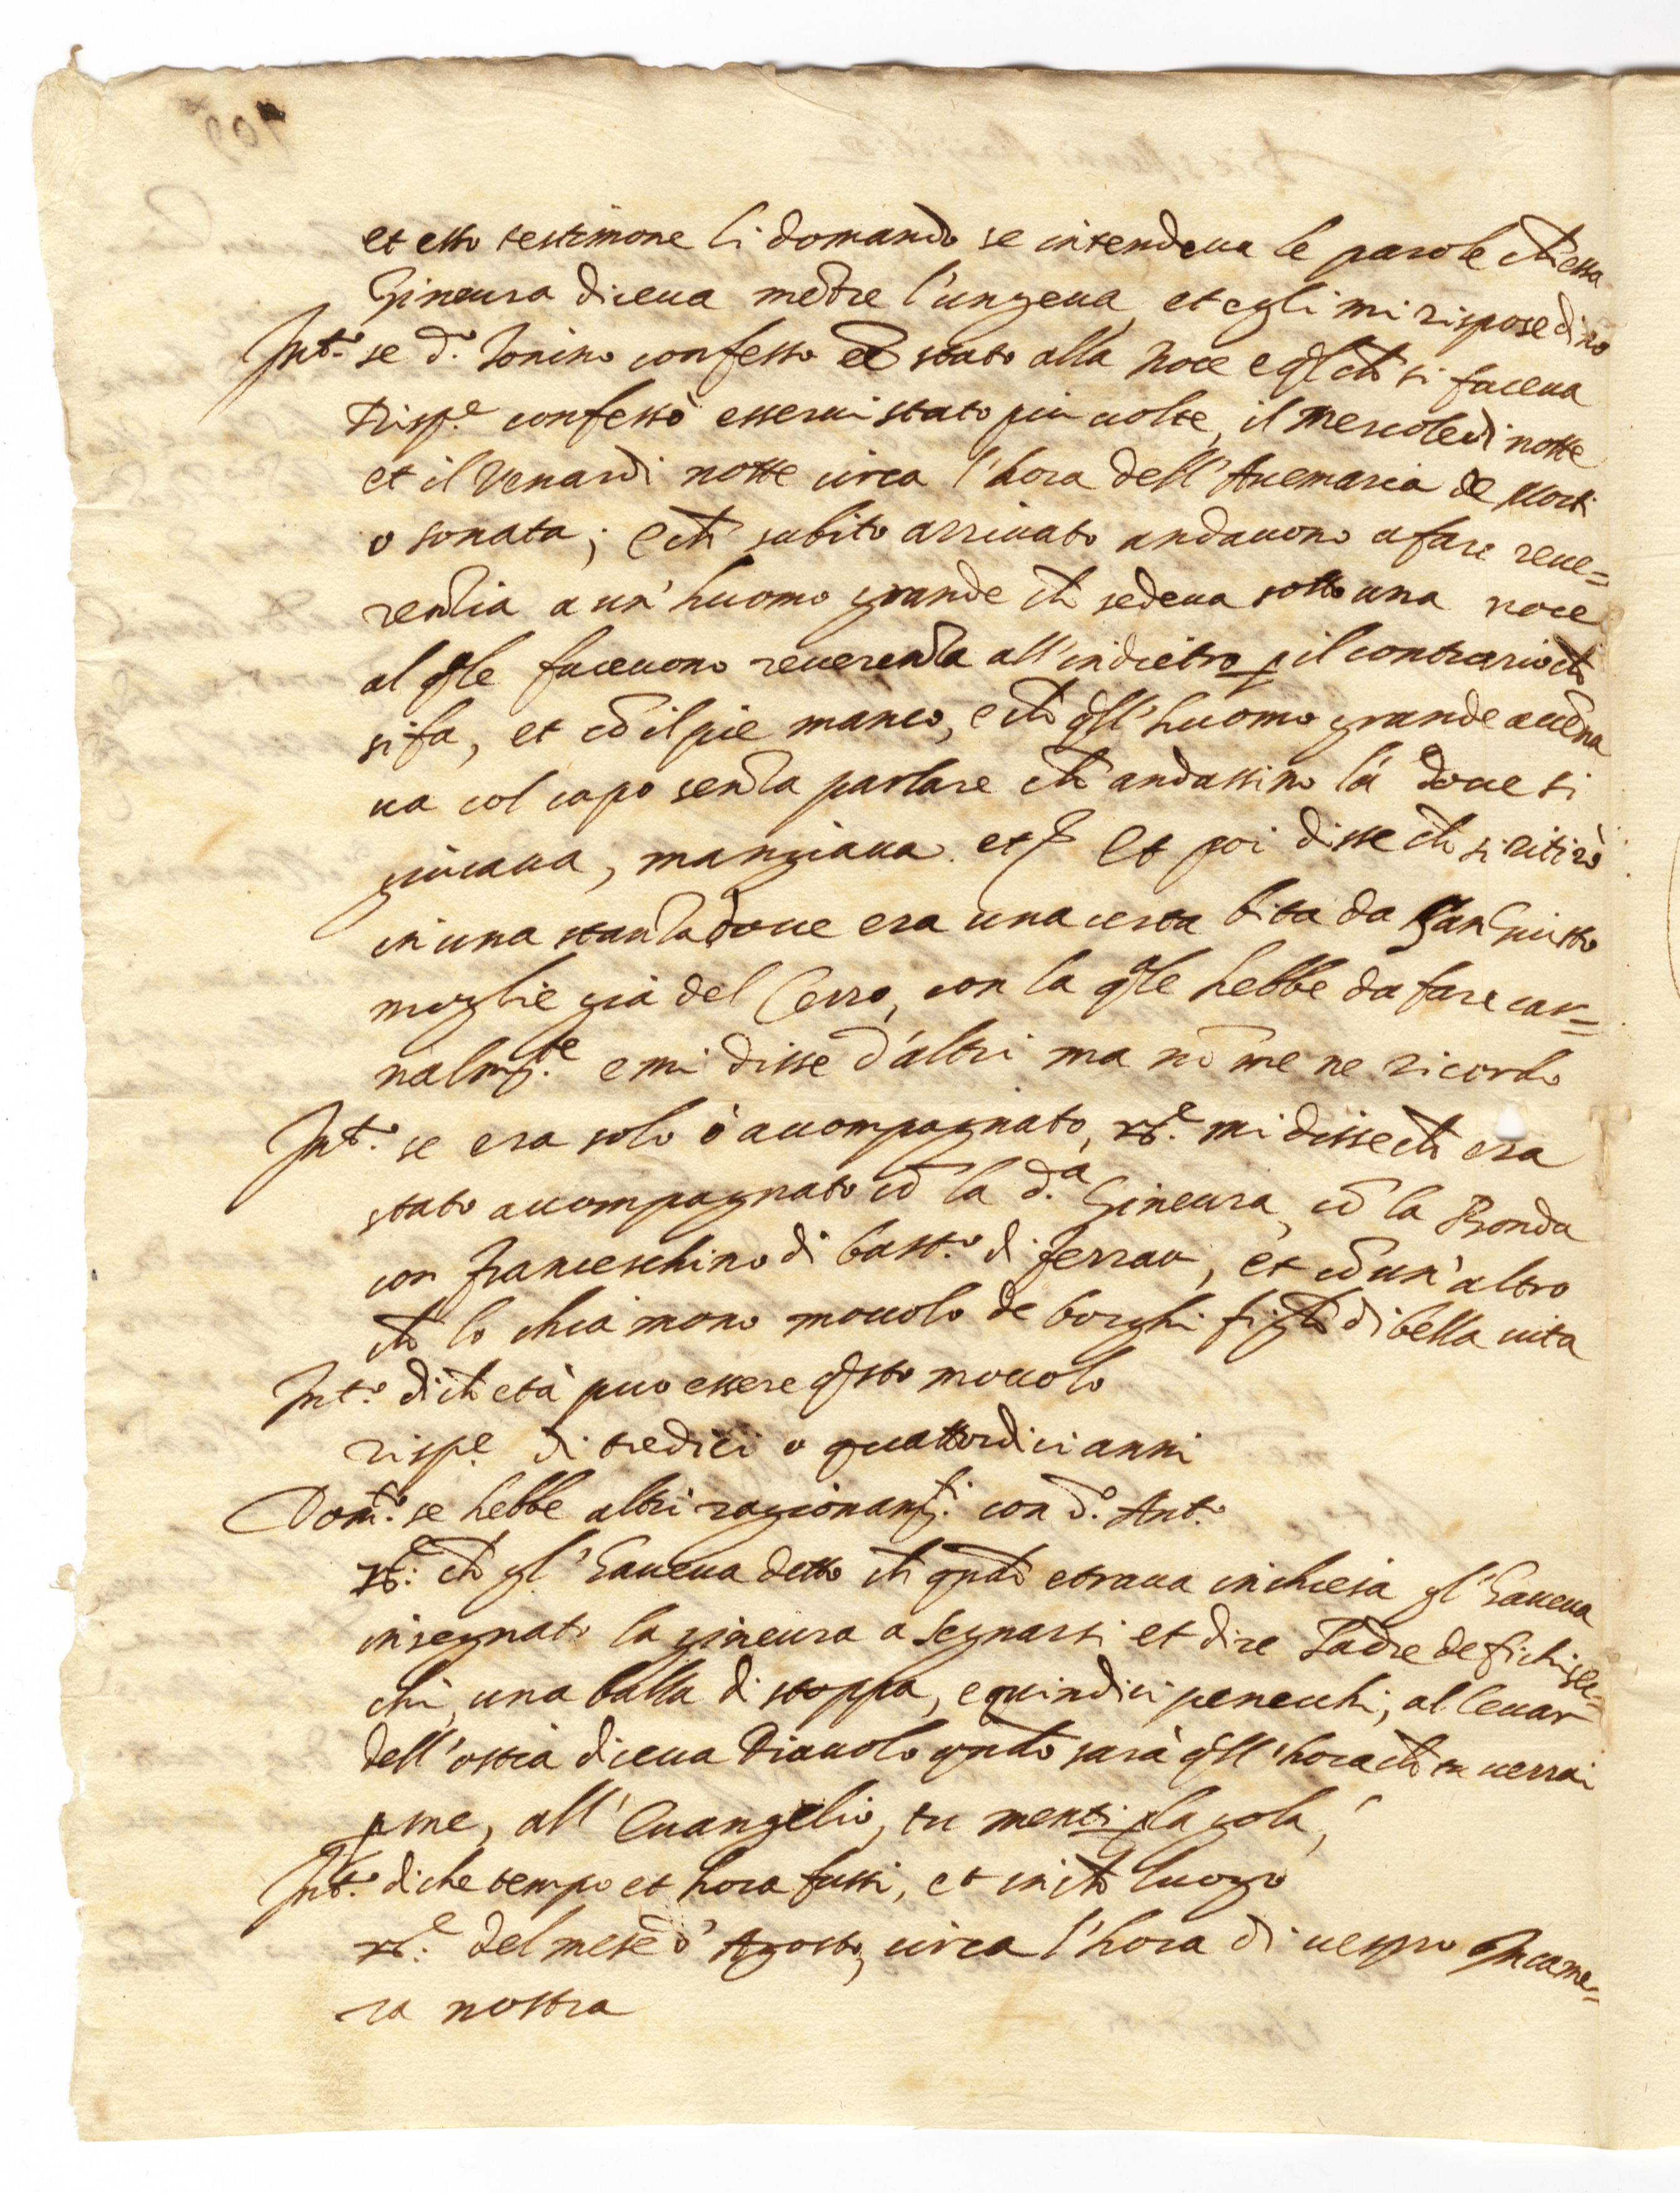 et esso testimone li domandò se intendeua le parole ch'essa
Gineura diceua mẽtre l'ungeua, et egli mi rispose di no
Int.º se d.º Tonino confesso esser stato alla Noce e q̃l ch̃ si faceua
Risp.e confessò esserui stato piu uolte, il mercoledi notte
et il Venardi notte circa l'hora dell'Auemaria de Morti
o sonata; e ch̃ subito arriuato andauono a fare reue=
rentia a un'huomo grande ch̃ sedeua sotto una noce
al q̃le faceuono reuerentia all'indietro p il contrario ch̃
si fa, et cõ il pie manco, e ch̃ q̃ll'huomo grande accẽna
ua col capo senza parlare ch̃ andassino là doue si
giucaua, mangiaua. et c. Et poi disse ch̃ si ritirò
in una stanza doue era una certa bita da San Giusto
moglie già del Cerro, con la q̃le hebbe da fare car=
nalm.te e mi disse d'altri ma nõ me ne ricordo
Int.º se era solo ò accompagnato, r.e mi disse ch̃ era
stato accompagnato cõ la d.a Gineura, cõ la Bionda
con franceschino di bast.º di ferrao, et cõ un'altro
ch̃ lo chiamono moccolo de borghi figlo di bella uita
Int.º di ch̃ età puo essere q̃sto moccolo
risp.e di tredici o quattordici anni
Dom.º se hebbe altri ragionam.ti con d.º Ant.º
R.e ch̃ gl'haueua detto ch̃ q̃ndo etraua in chiesa gl'haueua
insegnato la gineura a segnarsi et dire Padre de fichi sec=
chi, una balla di stoppa, e quindici penecchi, al leuar
dell'ostia diceua Diauolo q̃ndo sarà q̃ll'hora ch̃ tu uerrai
p me, all'Euangelio, tu menti p la gola,
Int.º di che tempo et hora fussi, et in ch̃ luogo
r.e del mese d'Agosto, circa l'hora di uespro In came=
ra nostra